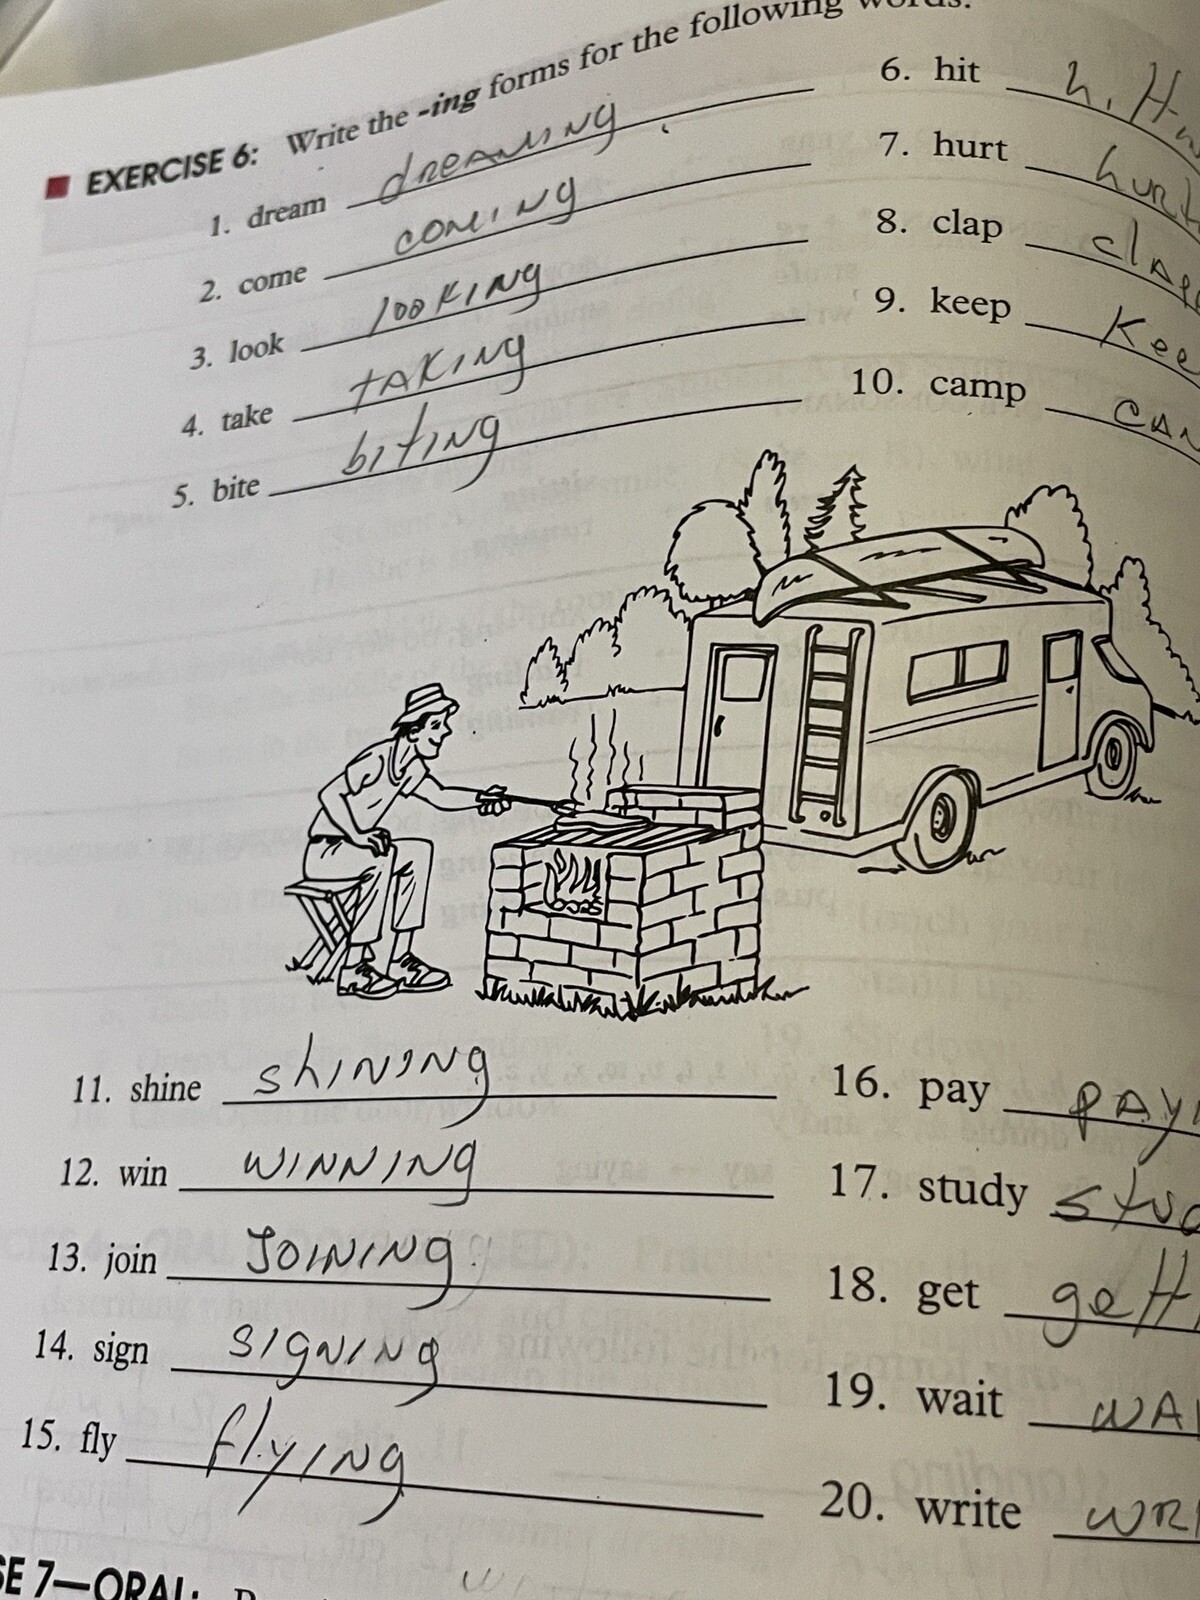 EXERCISE 6: Write the -ing forms for the following words.
1. dream dreaming
2. come coming
3. look looking
4. take taking
5. bite biting
6. hit hitt
7. hurt hurt
8. clap clapp
9. keep kee
10. camp can
11. shine shining
12. win winning
13. join Joining
14. sign signing
15. fly flying
16. pay pay
17. study stu
18. get gett
19. wait wai
20. write wri
SE 7—ORAL: